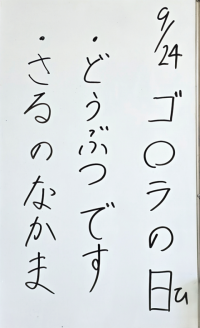 9/24 ゴ〇ラの日ひ
・どうぶつです
・さるのなかま